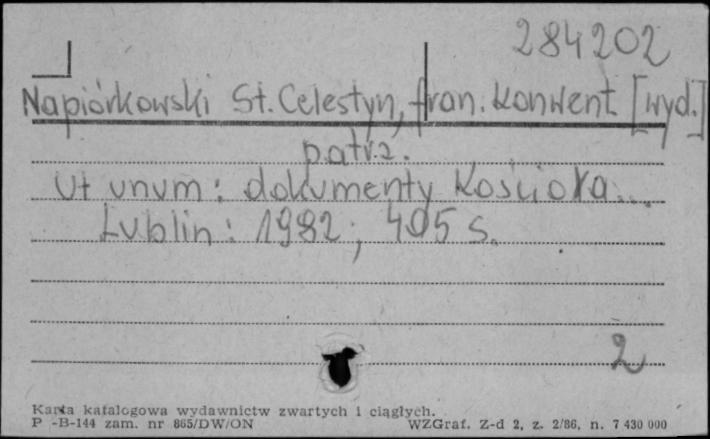 284202
Napiórkowski St. Celestyn, fran. konwent. [wyd.]
patrz.
Ut unum: dokumenty Kościoła...
Lublin: 1982; 495 s.
2
Karta katalogowa wydawnictw zwartych i ciągłych.
P -B-144 zam. nr 865/DW/ON WZGraf. Z-d 2, z. 2/86, n. 7 430 000